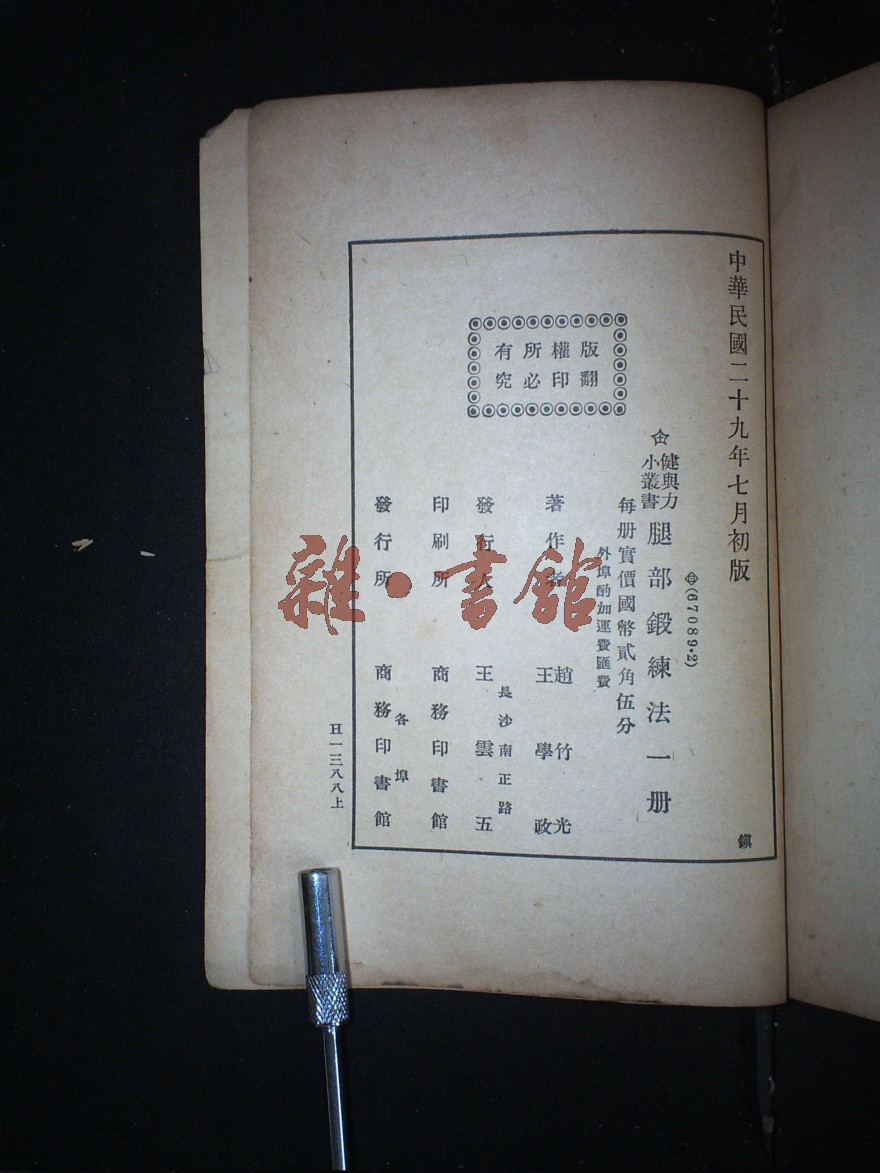 中華民國二十九年七月初版
版權所有
翻印必究
(67089·2)
健與力
小叢書
腿部鍛練法一册
每册實價國幣貳角伍分
外埠酌加運費匯費
著作者
趙竹光
王學政
長沙南正路
發行人
王雲五
印刷所
商務印書館
各埠
發行所
商務印書館
H一三八八上
鎭
雜·書館